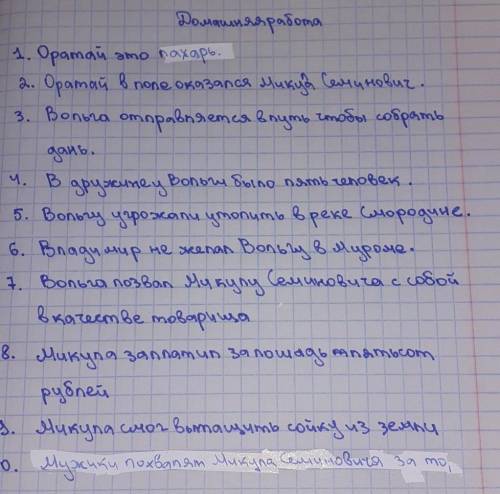 Домашняя работа
1. Оратай это пахарь.
2. Оратай в поле оказался Микула Семинович.
3. Вольга отправляется в путь чтобы собрать
дань.
4. В дружине у Вольги было пять человек.
5. Вольгу угрожали утопить в реке Смородине.
6. Владимир не желал Вольгу в Муроме.
7. Вольга позвал Микулу Семиновича с собой
в качестве товарища
8. Микула заплатил за лошадь пятьсот
рублей
9. Микула смог вытащить сойку из земли
0. Мужики похвалят Микула Семиновича за то,